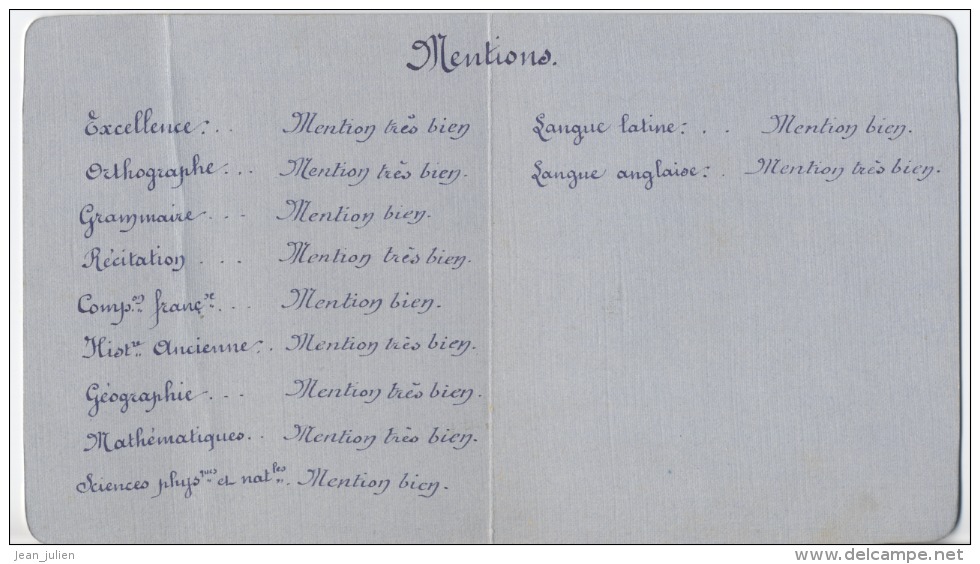 Mentions.
Excellence: . . Mention très bien
Orthographe: . . Mention très bien.
Grammaire . . . Mention bien.
Récitation . . . Mention très bien.
Comp.on franç.se . . . Mention bien.
Hist.re Ancienne: . Mention très bien.
Géographie . . . Mention très bien.
Mathématiques . . Mention très bien.
Sciences phys.ques et nat.les. Mention bien.
Langue latine: . . Mention bien.
Langue anglaise: . Mention très bien.
Jean_julien
www.delcampe.net